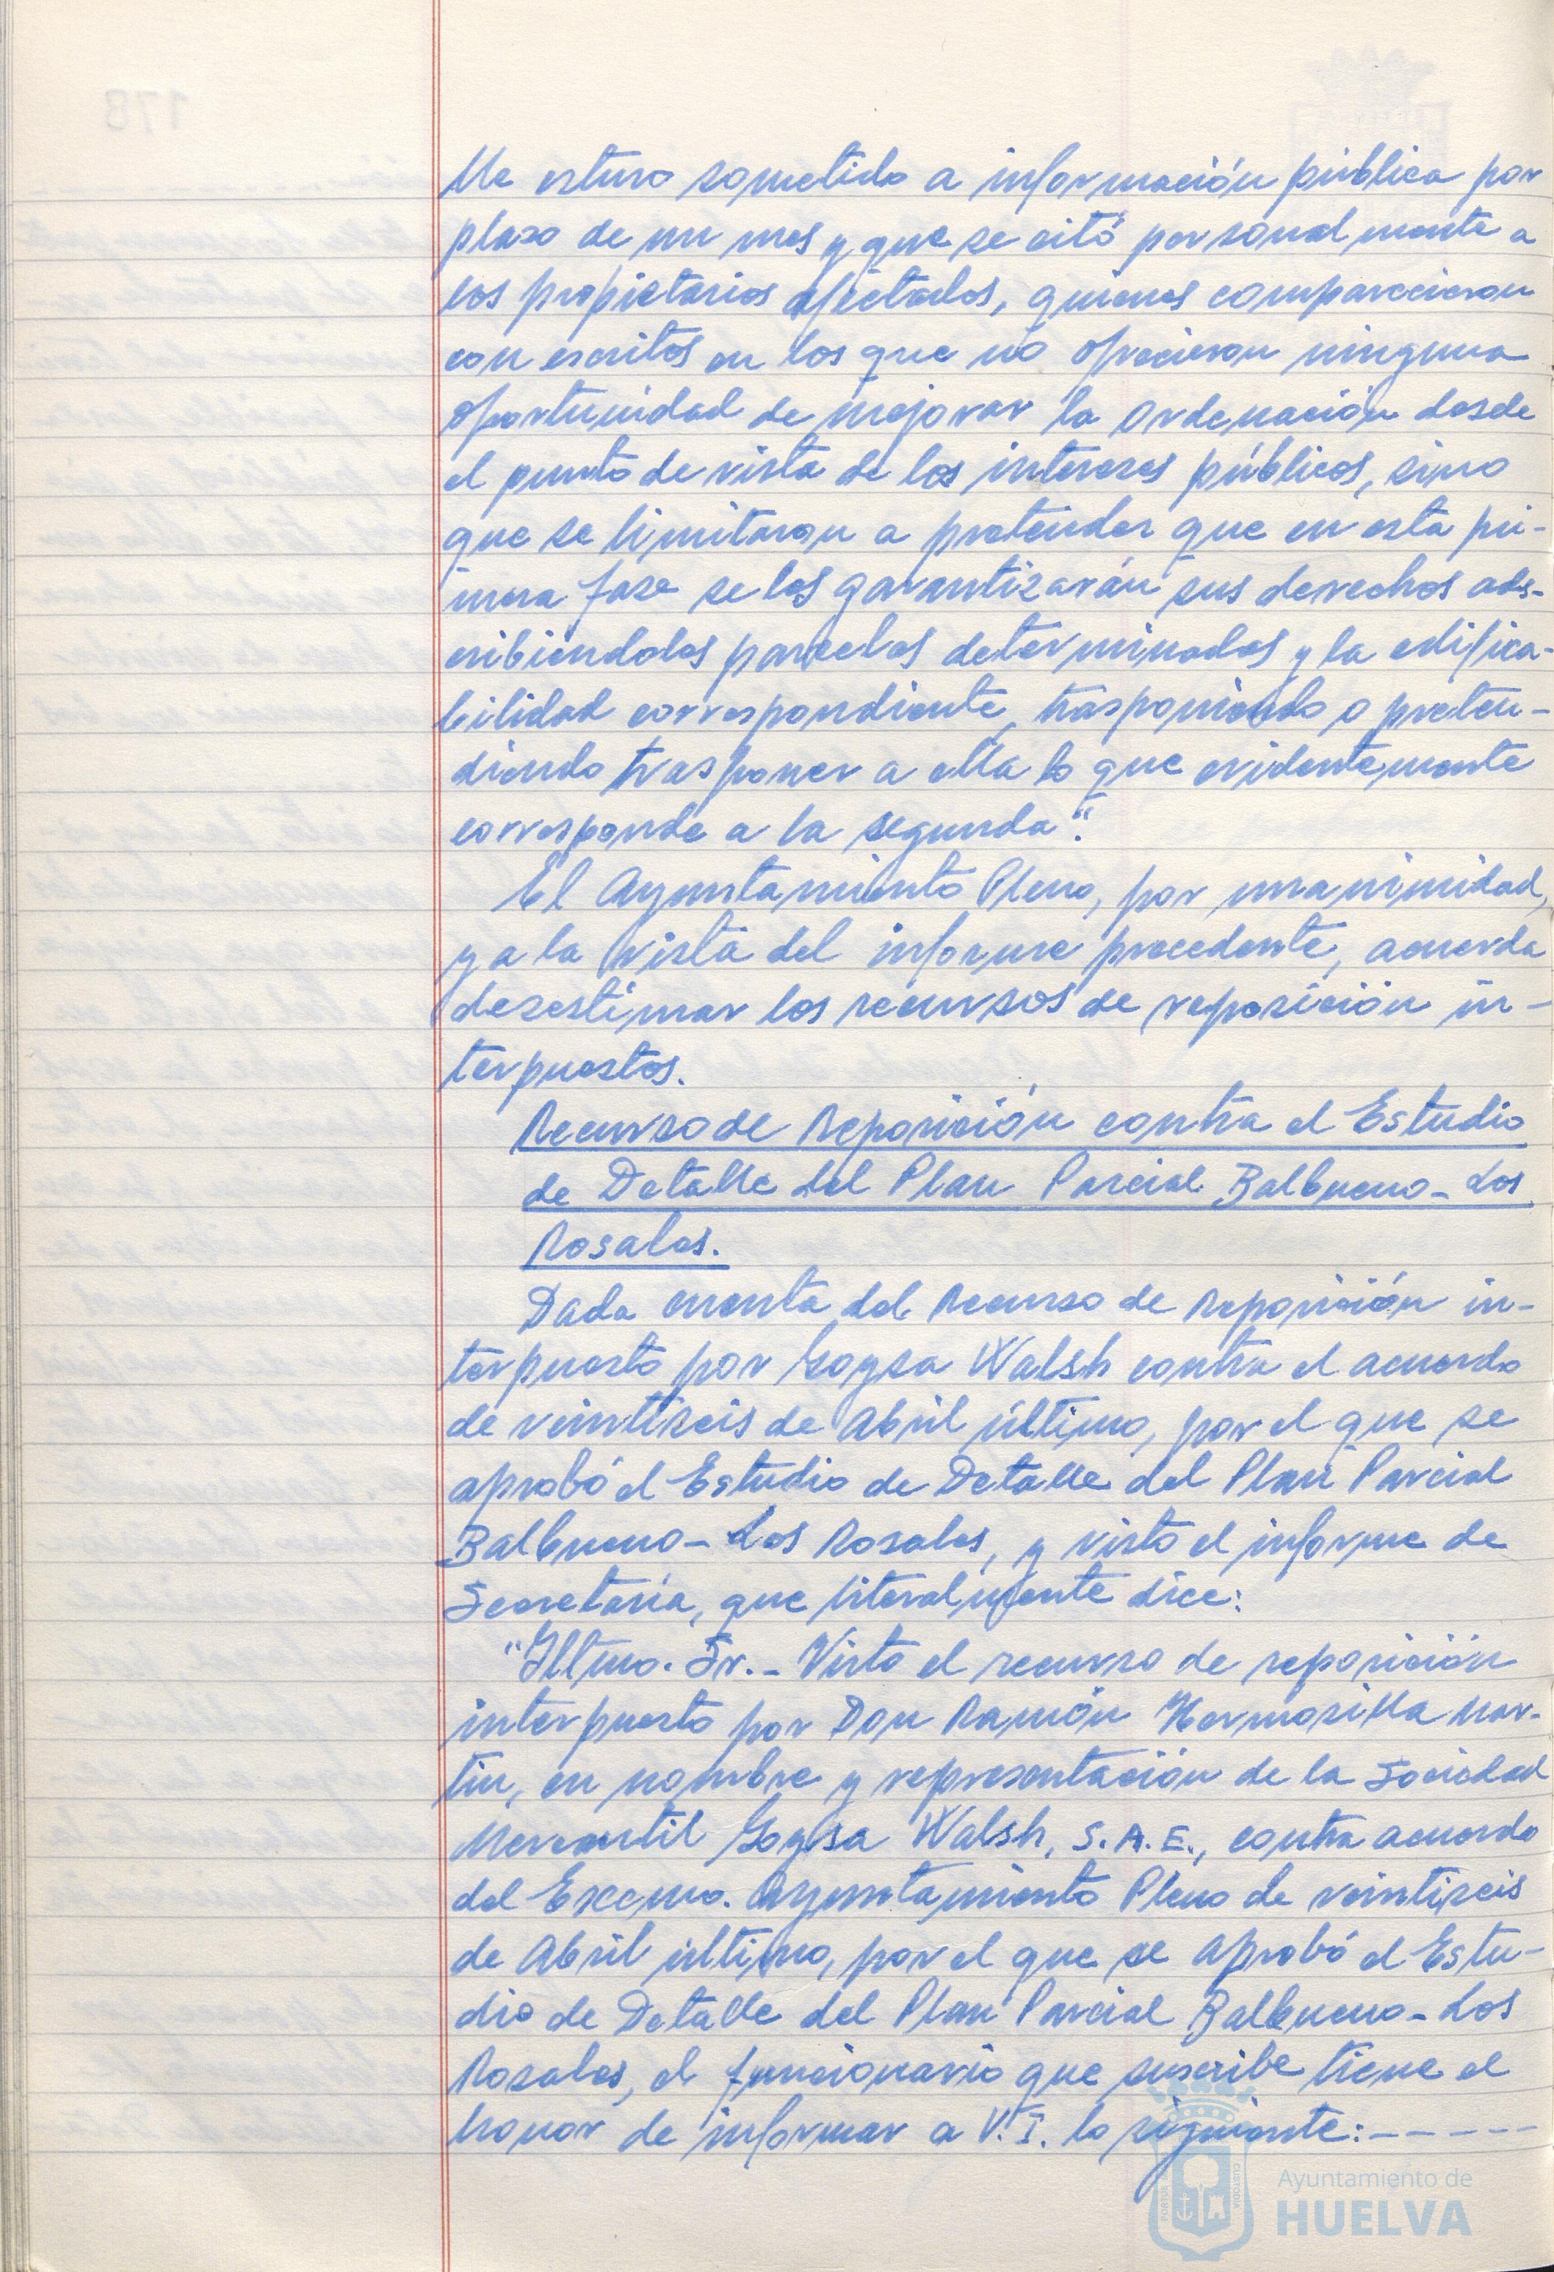 lle estuvo sometido a información pública por
plazo de un mes y que se citó personalmente a
los propietarios afectados, quienes comparecieron
con escritos en los que no ofrecieron ninguna
oportunidad de mejorar la Ordenación desde
el punto de vista de los intereses públicos, sino
que se limitaron a pretender que en esta pri-
mera fase se les garantizarán sus derechos ads-
cribiéndoles parcelas determinadas y la edifica-
bilidad correspondiente, trasponiendo o preten-
diendo trasponer a ella lo que evidentemente
corresponde a la segunda".
El Ayuntamiento Pleno, por unanimidad,
y a la vista del informe precedente, acuerda
desestimar los recursos de reposición in-
terpuestos.
Recurso de Reposición contra el Estudio
de Detalle del Plan Parcial Balbueno-Los
Rosales.
Dada cuenta del Recurso de Reposición in-
terpuesto por Goysa Walsh contra el acuerdo
de veintiseis de Abril último, por el que se
aprobó el Estudio de Detalle del Plan Parcial
Balbueno-Los Rosales, y visto el informe de
Secretaría, que literalmente dice:
"Iltmo. Sr.- Visto el recurso de reposición
interpuesto por Don Ramón Hermosilla Mar-
tin, en nombre y representación de la Sociedad
Mercantil Goysa Walsh, S.A.E., contra acuerdo
del Excmo. Ayuntamiento Pleno de veintiseis
de Abril último, por el que se aprobó el Estu-
dio de Detalle del Plan Parcial Balbueno-Los
Rosales, el funcionario que suscribe tiene el
honor de informar a V.I. lo siguiente:-----
Ayuntamiento de
HUELVA